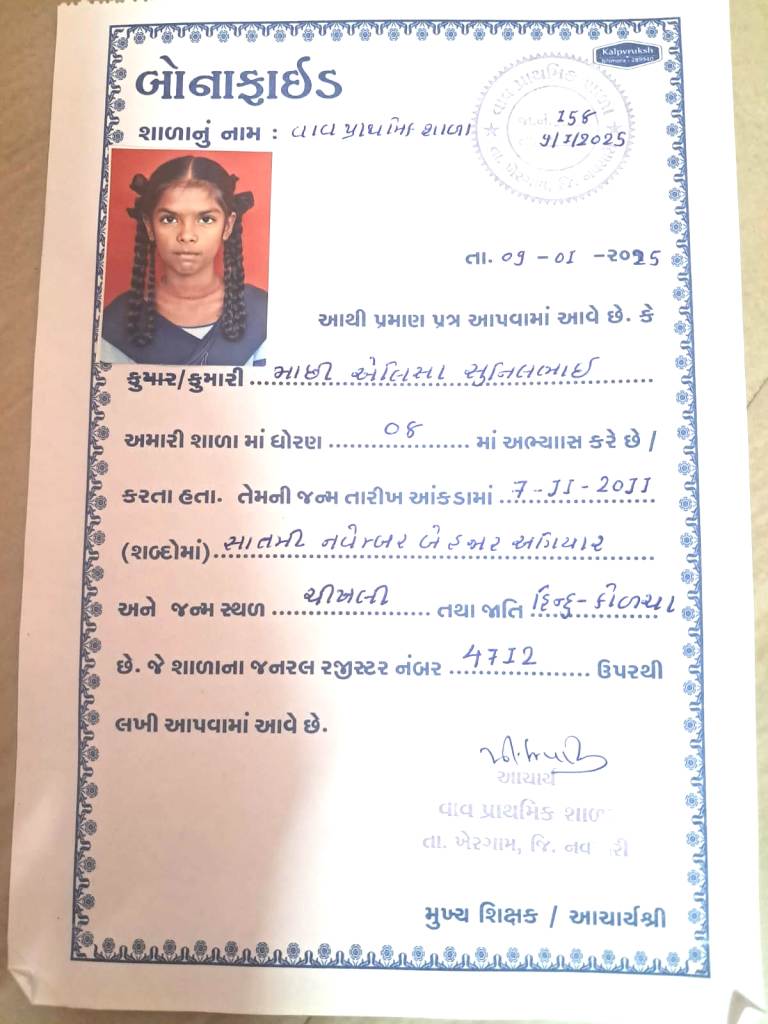 Kalpvruksh
Bilimora - 289540
બોનાફાઈડ
શાળાનું નામ : વાવ પ્રાથમિક શાળા
વાવ પ્રાથમિક શાળા
જા.નં. 158
9/1/2025
તા. ખેરગામ, જિ. નવસારી
તા. 09 - 01 - ૨૦૨5
આથી પ્રમાણ પત્ર આપવામાં આવે છે. કે
કુમાર/કુમારી માછી એલિસા સુનિલભાઈ
અમારી શાળા માં ધોરણ 08 માં અભ્યાાસ કરે છે /
કરતા હતા. તેમની જન્મ તારીખ આંકડામાં 7-11-2011
(શબ્દોમાં) સાતમી નવેમ્બર બે હજાર અગિયાર
અને જન્મ સ્થળ ચીખલી તથા જાતિ હિન્દુ- કોળચા
છે. જે શાળાના જનરલ રજીસ્ટર નંબર 4712 ઉપરથી
લખી આપવામાં આવે છે.
આચાર્ય
વાવ પ્રાથમિક શાળ
તા. ખેરગામ, જિ. નવ રી
મુખ્ય શિક્ષક / આચાર્યશ્રી